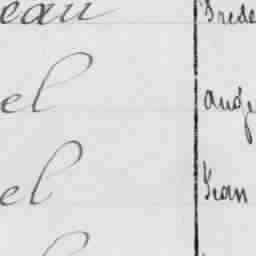 eau Frede
el ange
el Jean